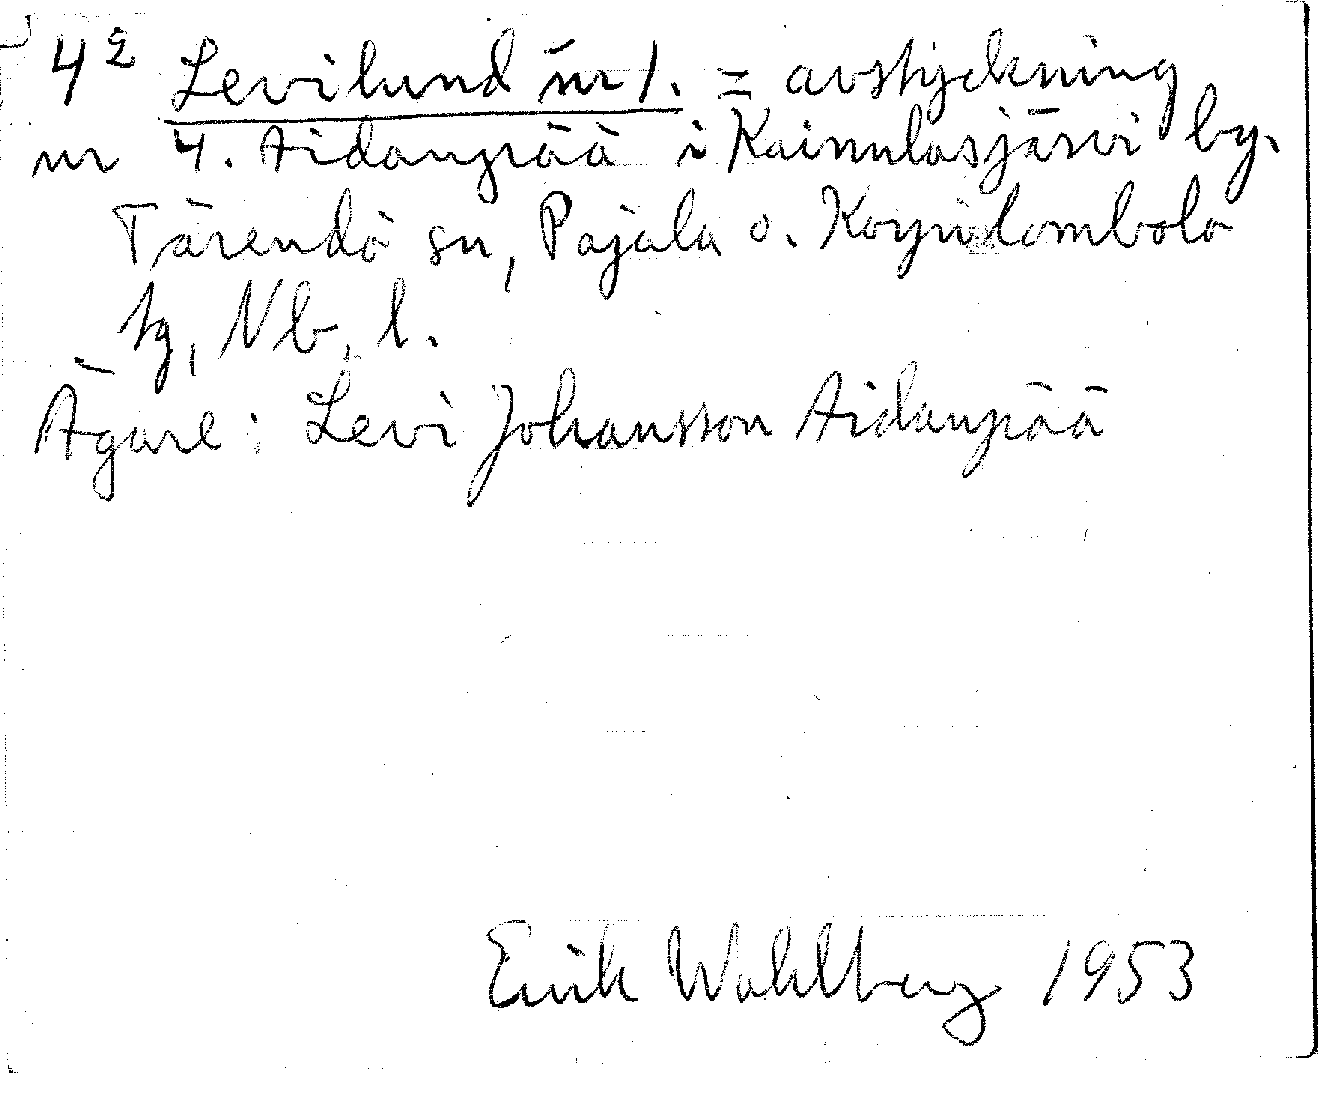 4² Levilund nr 1. = avstyckning
nr 4. Aidanpää i Kainulasjärvi by.
Tärendö sn, Pajala o. Korpilombolo
tg, Nb. l.
Ägare: Levi Johansson Aidanpää
Erik Wahlberg 1953